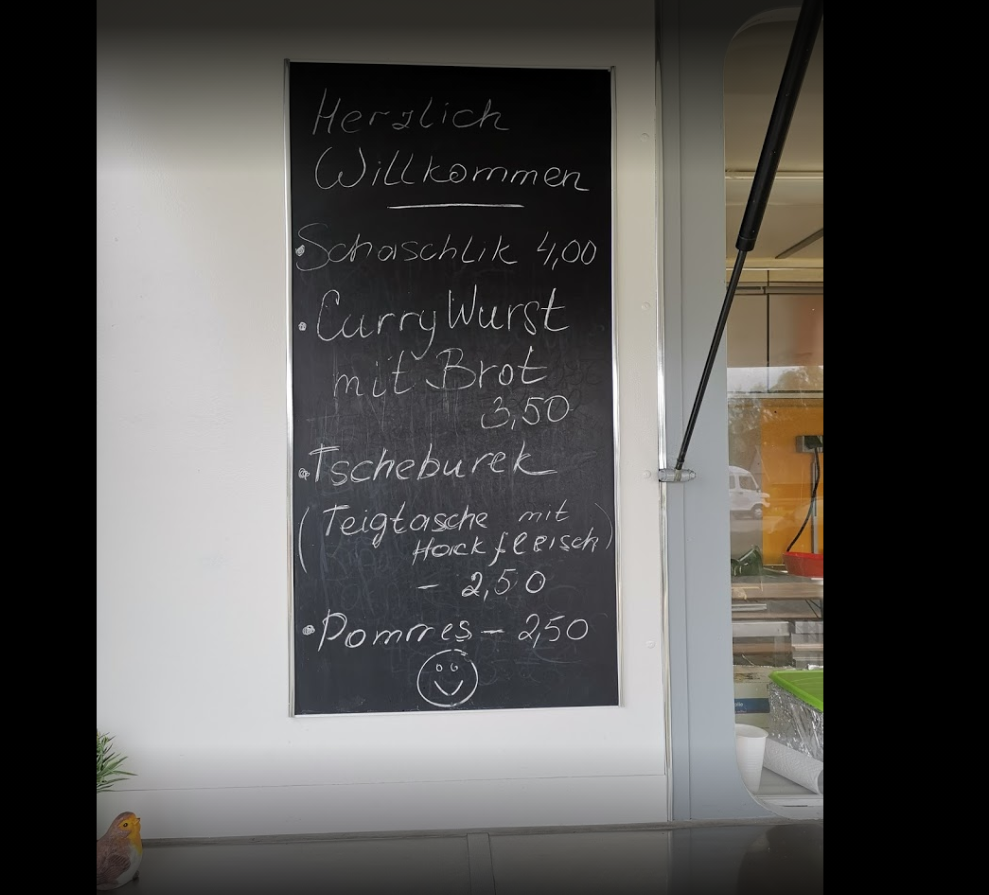 Herzlich
Willkommen
• Schaschlik 4,00
• CurryWurst
mit Brot
3,50
• Tscheburek
(Teigtasche mit
Hackfleisch)
- 2,50
• Pommes - 2,50